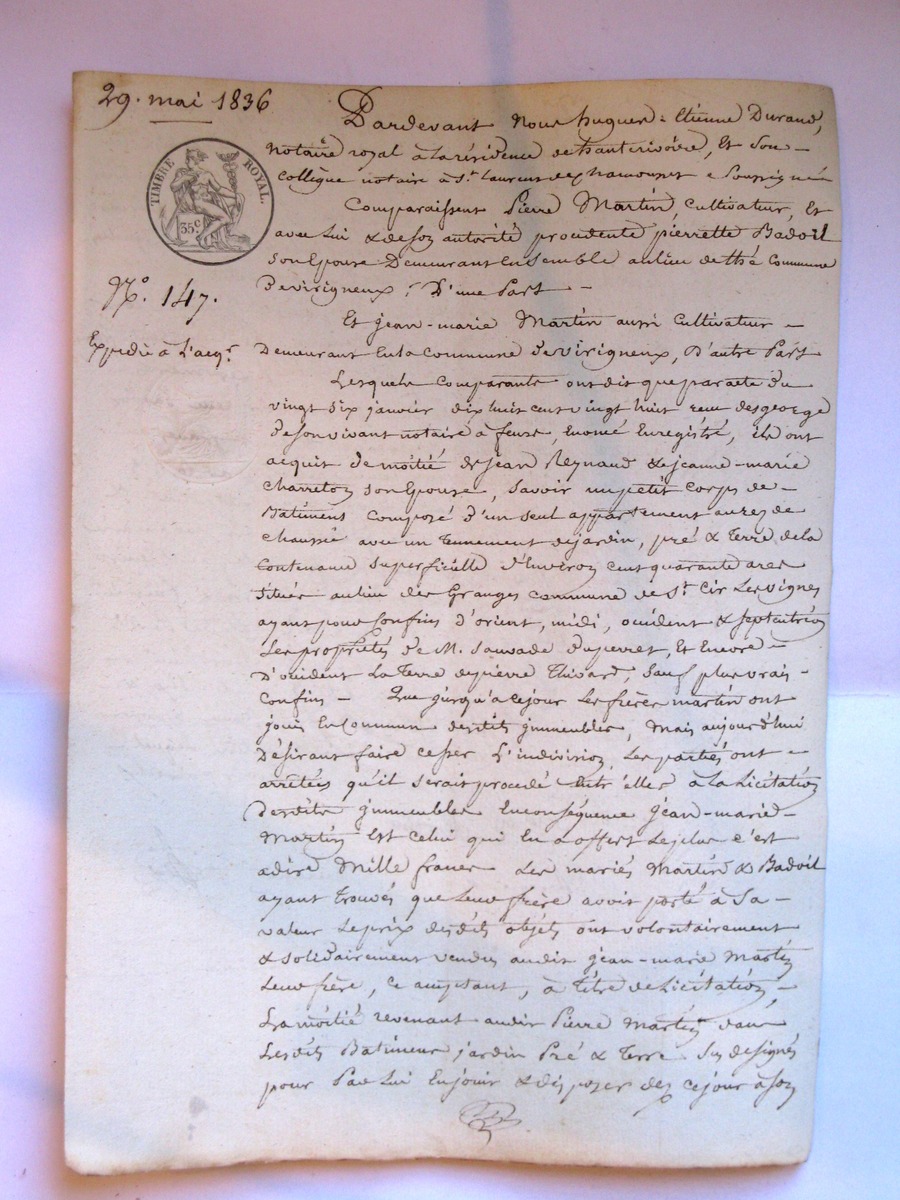 29. mai 1836
TIMBRE ROYAL.
35c
N.o 147.
Expedié à l'acq.r
Pardevant Nous hugues-Etienne Durand,
Notaire royal à la résidence de hauterivoire, Et Son
Collègue notaire à St. Laurent de Chamousset Soussignés
Comparaissent Pierre Martin, Cultivateur, Et
avec lui & de son autorité procedente pierrette Badoil
son Epouse Demeurant Ensemble au lieu de Commune
de virigneux, D'une Part
Et jean-marie Martin aussi Cultivateur
Demeurant En la Commune de Virigneux, D'autre Part
Lesquels Comparants ont dit que par acte du
vingt six janvier dix huit cent vingt huit recu desgeorge
de son vivant notaire à feurs, Enregistré, ils ont
acquit de moitié de jean Reynaud & de jeanne-marie
Charreton son Epouse, Savoir un petit Corps de
Batiment Composé d'un seul appartement au rez de
chaussée avec un Tennement de jardin, pré & Terre de la
Contenance superficielle d'Environ cent quarante ares
Situés au lieu des Granges commune de St. Cir Les vignes
ayant pour Confins d'orient, midi, occident & septentrion
Les propriétés de M. Sauvade Duperret, Et Encore
D'occident La Terre de pierre Thivard, Sauf plus vrais
Confins - Que jusqu'a ce jour Les frères martin ont
joui En Commun desdits jmmeubles, Mais aujourd'hui
Désirant faire cesser L'indivision, Les parties ont
arretées qu'il serait procedé Entr'elles à La Licitation
Desdits jmmeubles En conséquence jean-marie
Martin Est Celui qui En a offert Le plus c'est
adire Mille francs Les mariés Martin & Badoil
ayant Trouvés que Leur frère avoit porté à Sa
valeur Le prix desdits objets ont volontairement
& solidairement vendus audit jean-marie Martin
Leur frère, ce acceptant, à titre de Licitation,
La moitié revenant audit Pierre Martin dans
Lesdits Batiment jardin Pré & Terre Sus designés
pour Par Lui En jouir & disposer dès ce jour à son